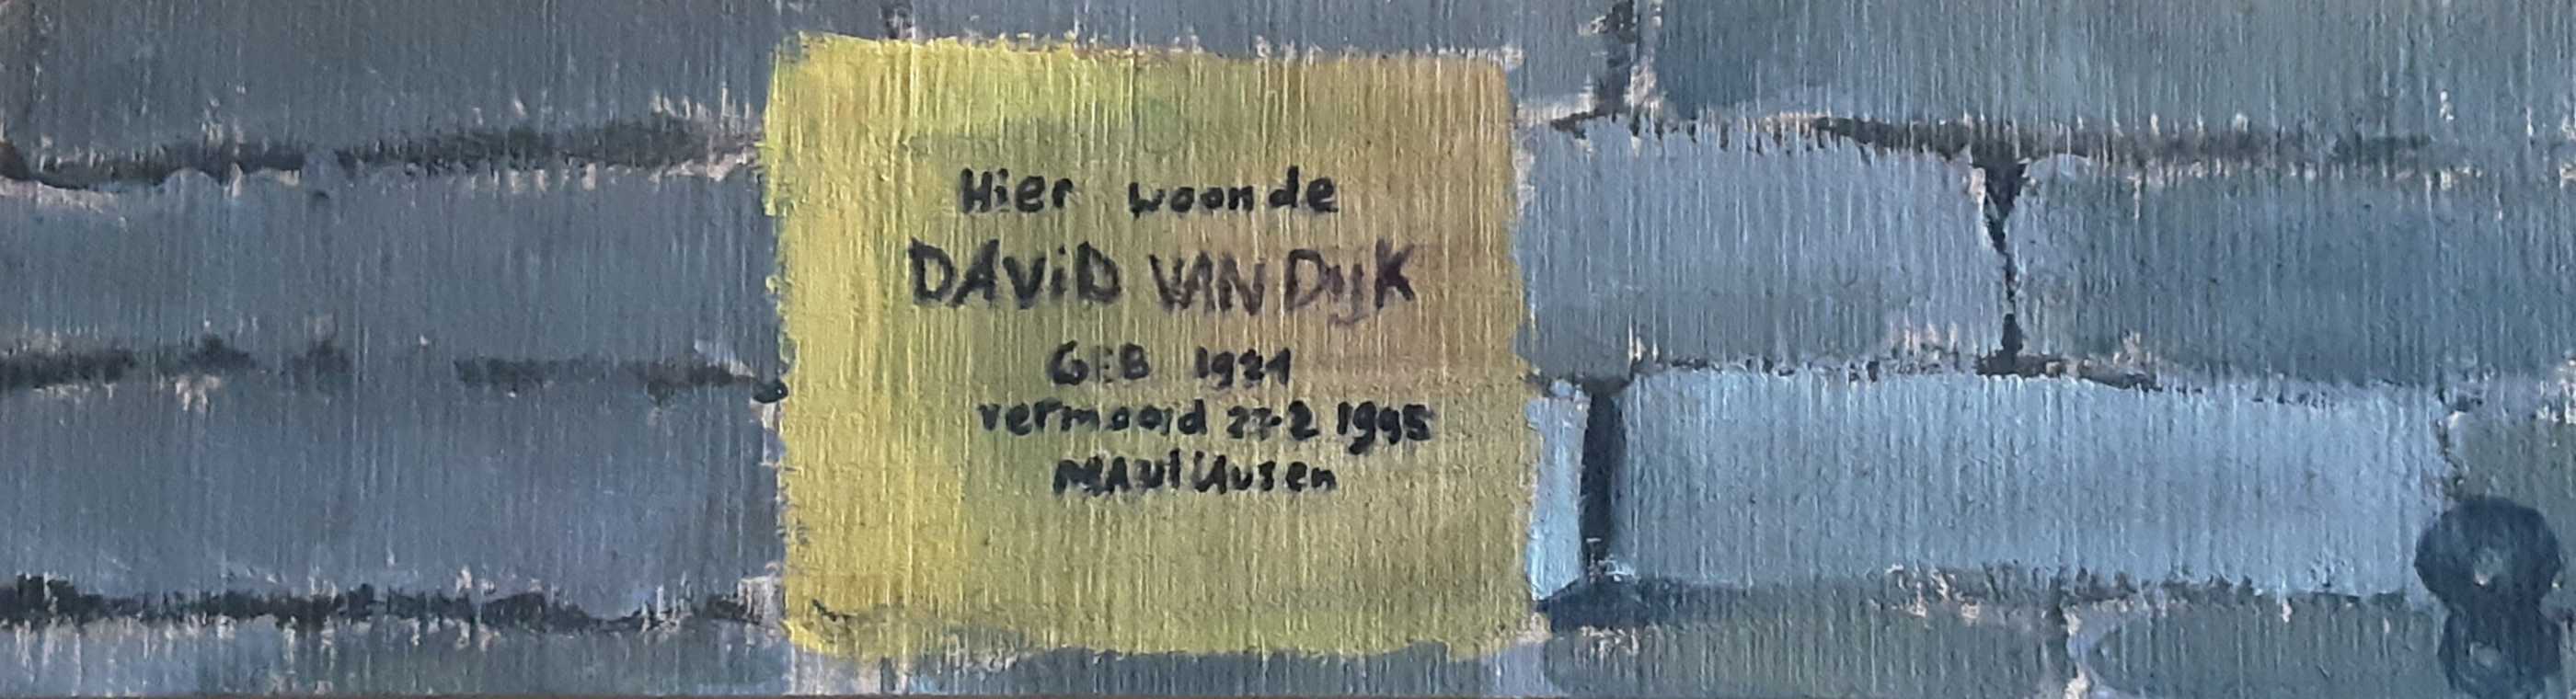 Hier woonde
DAViD VAN DijK
GEB 1921
vermoord 27-2 1945
MAutHausen